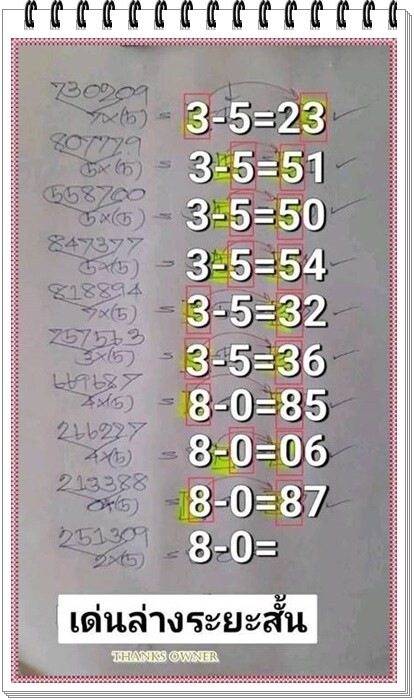 730209
7x(5) = 3-5=23
807779
5x(5) = 3-5=51
558700
5x(5) = 3-5=50
847377
5x(5) = 3-5=54
818894
7x(5) = 3-5=32
757563
3x(5) = 3-5=36
669687
4x(5) = 8-0=85
266227
4x(5) = 8-0=06
213388
0x(5) = 8-0=87
251309
2x(5) = 8-0=
เด่นล่างระยะสั้น
THANKS OWNER